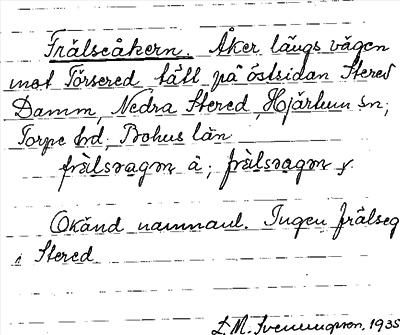 Frälseåkern. Åker längs vägen
mot Törsered tätt på östsidan Stered
Damm, Nedra Stered, Hjärtum sn,
Torpe hd. Bohus län
frälsragen ä; frälsragen y.
Okänd namnaul. Ingen frälseg
i Stered
L. M. Svenungson. 1935